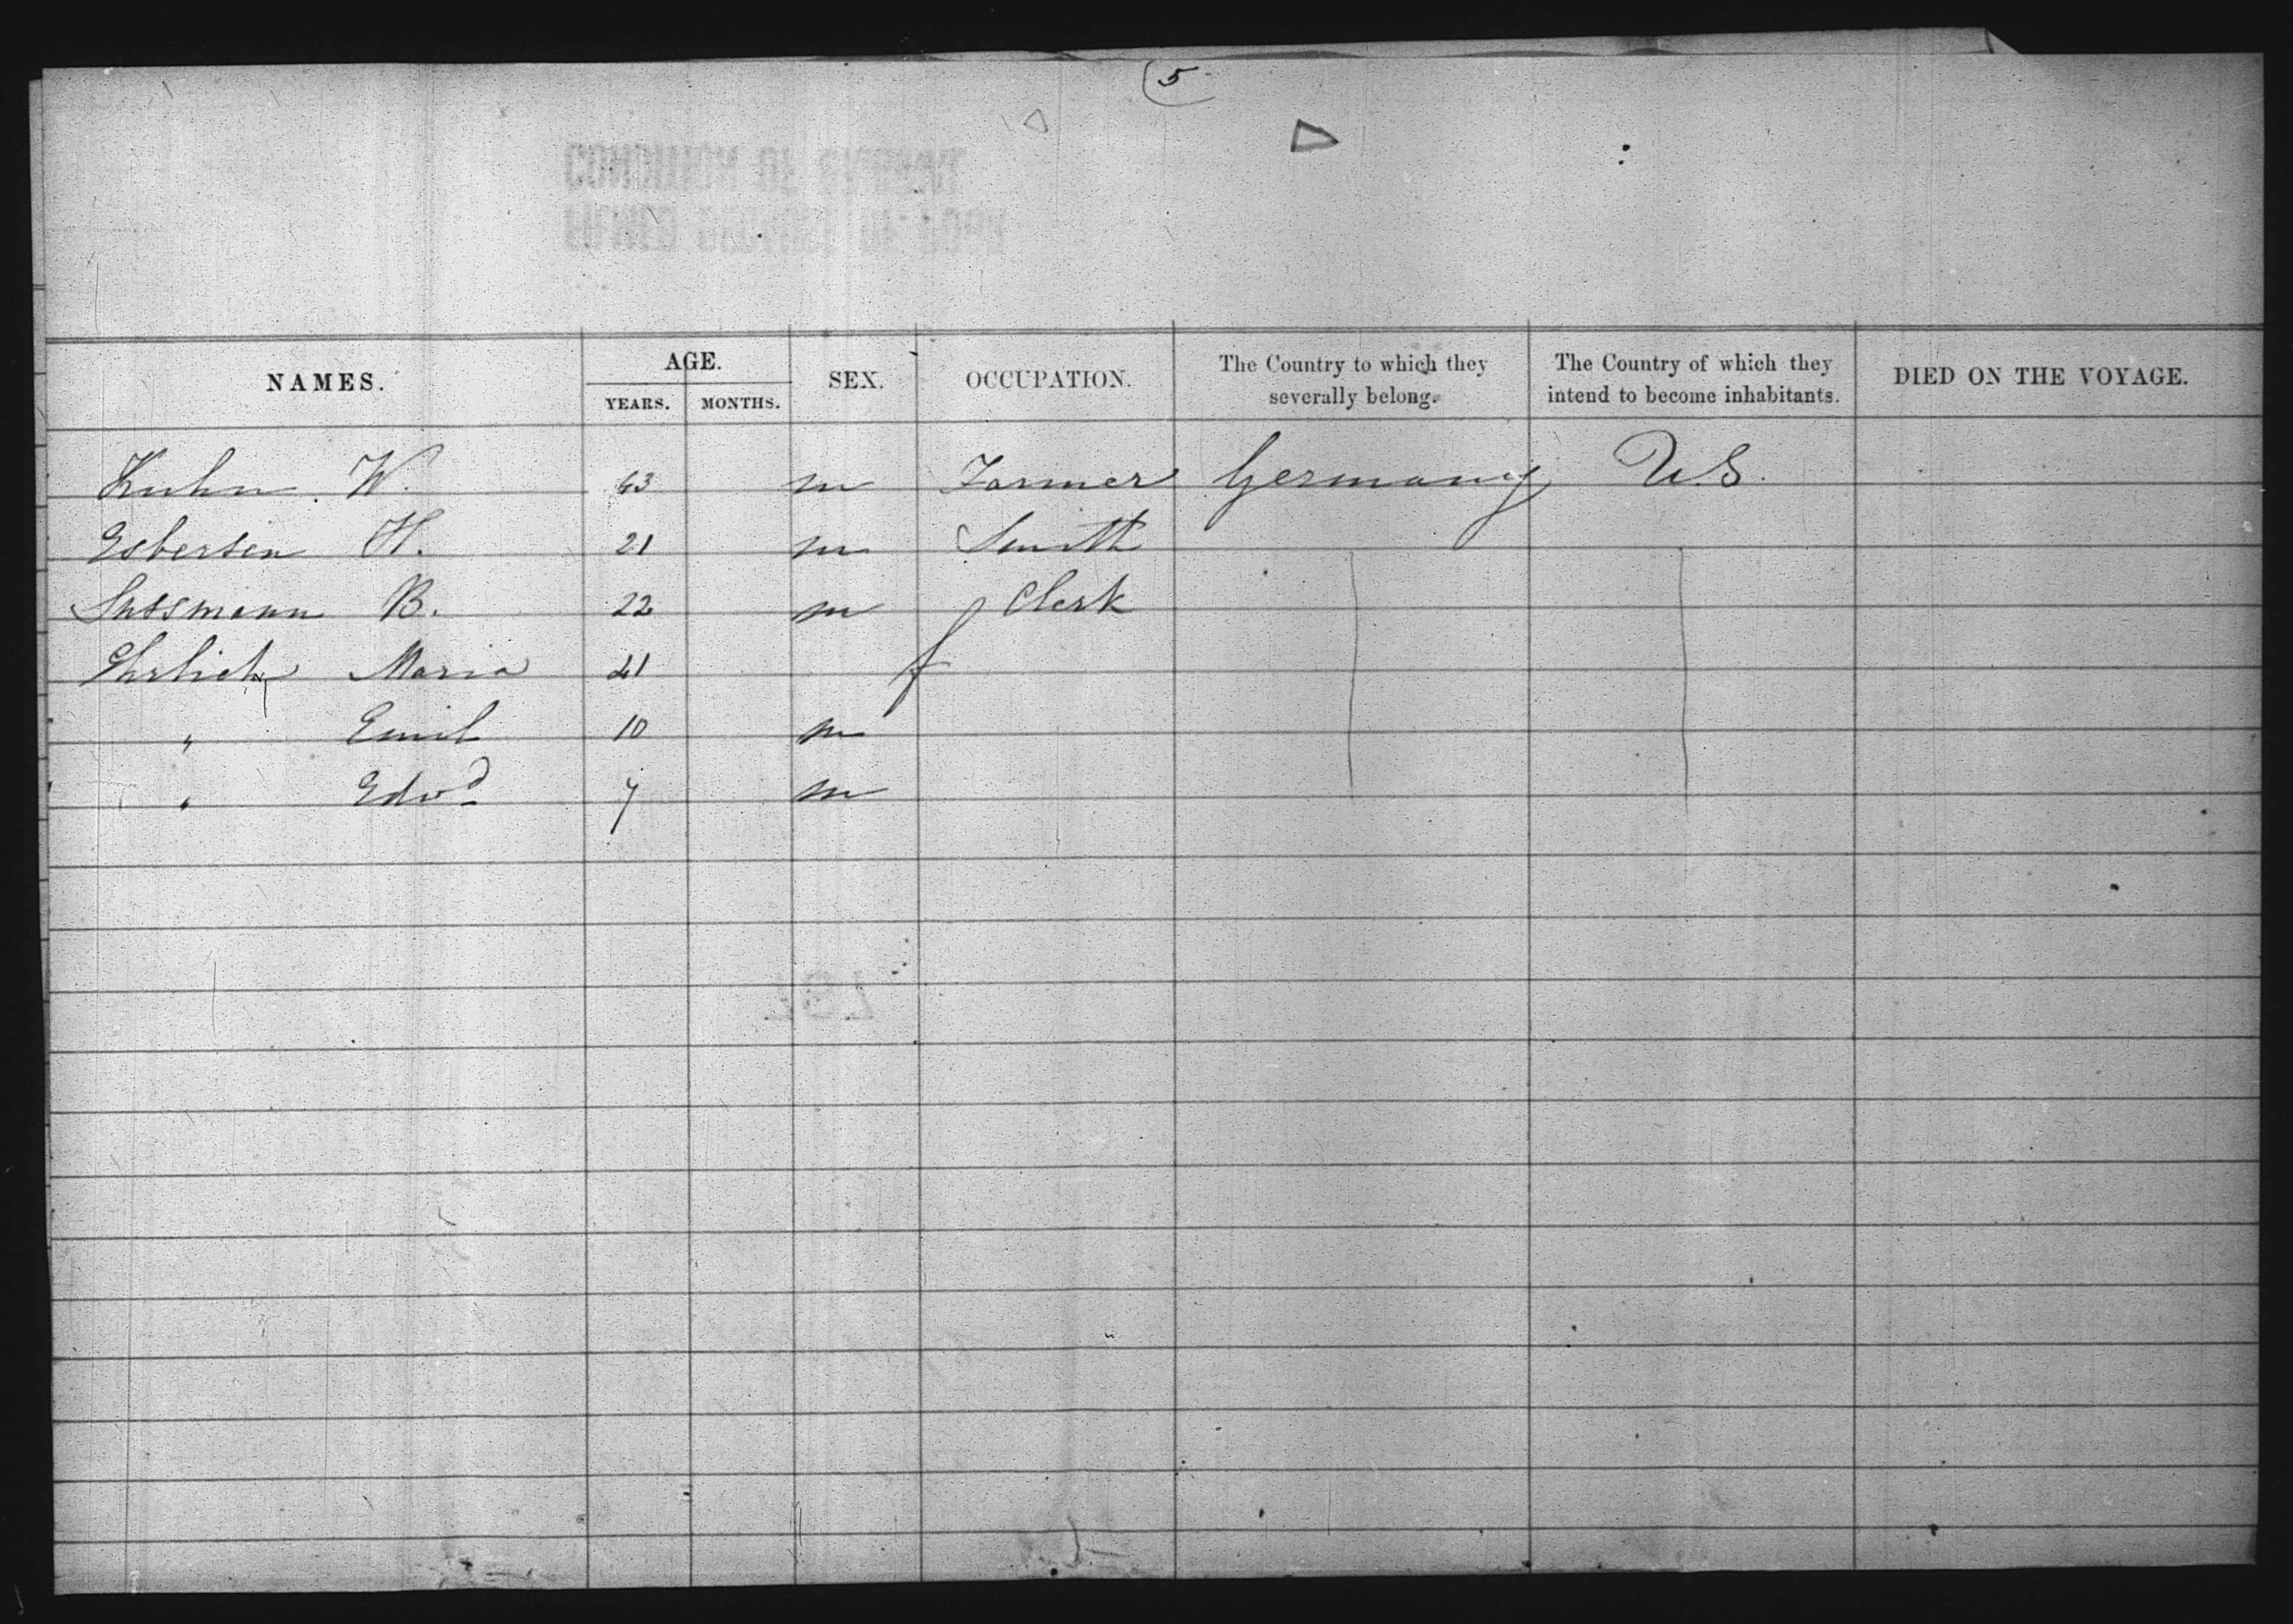 5
NAMES. AGE. YEARS. MONTHS. SEX. OCCUPATION. The Country to which they severally belong. The Country of which they intend to become inhabitants. DIED ON THE VOYAGE.
Kuhn W. 43 m Farmer Germany U.S.
Esbersen H. 21 m Smith
Sussmann B. 22 m Clerk
Ehrlich Maria 41 f
" Emil 10 m
" Edwd 7 m